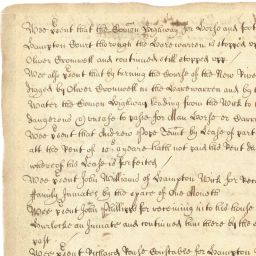 Wee p'sent that the Comon Highway for horse and foot
Hampton Court thorough the Harewarren is stopped up
Oliver Cromwell and continued still stopped upp
Wee also p'sent that by turning the Course of the New River
digged by Oliver Cromwell in the Harewarren and by
Water the Comon Highway leading from the Wick to
dangerous & unsafe to passe for Man horse or
Wee p'sent that Andrew Pope Tennt by Lease of part
att the Rent of 10s a yeare hath not paid the Rent
whereof the Lease is forfeited
Wee p'sent John Williams of Hampton Wick for
ffamily Inmates by the space of one Moneth
Wee p'sent John Phillipps for receiving into his house
an Inmate and continued him there by the
past
Wee p'sent Richard Constable for Hampton